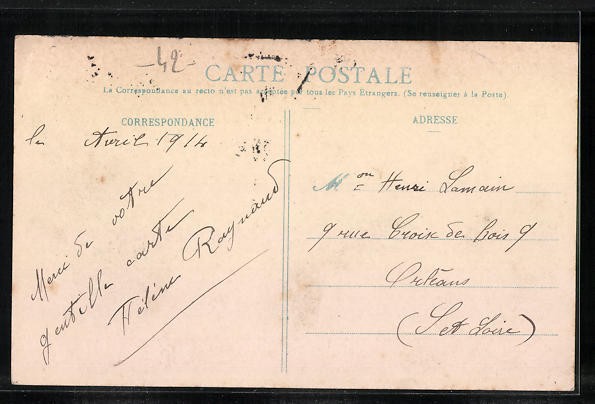 -42-
CARTE POSTALE
La Correspondance au recto n'est pas acceptée par tous les Pays Etrangers. (Se renseigner à la Poste).
CORRESPONDANCE
ADRESSE
le Avril 1914
Merci de votre
gentille carte
Hélène Raynaud
Mon Henri Lamain
9 rue Croix de Bois 9
Orléans
(S et Loire)